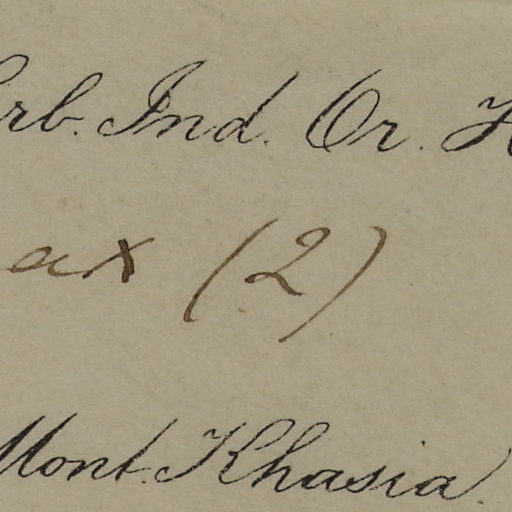 erb. Ind. Or. H
ax (2)
Mont. Khasia